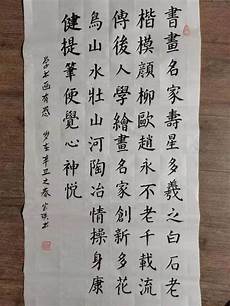 書畫名家壽星多羲之白石老
楷模顏柳歐趙永不老千載流
傳後人學繪畫名家創新多花
鳥山水壯山河陶冶情操身康
健提筆便覺心神悅